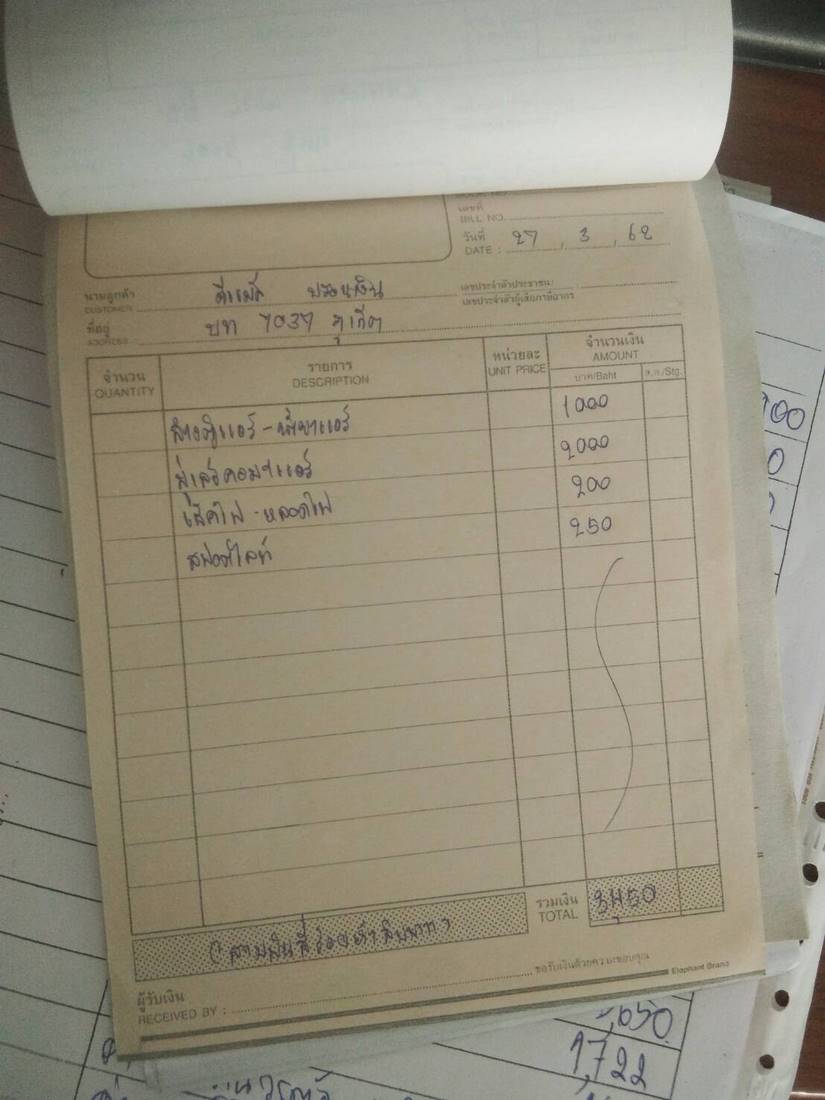 เลขที่
BILL NO.
วันที่ 27 , 3 , 62
DATE :
นามลูกค้า ดีแม็ก
CUSTOMER
เลขประจำตัวประชาชน/
เลขประจำตัวผู้เสียภาษีอากร
ที่อยู่ บท 7037 ภูเก็ต
ADDRESS
จำนวน รายการ หน่วยละ จำนวนเงิน
QUANTITY DESCRIPTION UNIT PRICE AMOUNT
บาท/Baht ส.ต./Stg.
ล้างตู้แอร์ - น้ำยาแอร์ 1000
มู่เล่ย์คอมฯแอร์ 2000
เช็คไฟ - หลอดไฟ 200
สปอร์ตไลท์ 250
รวมเงิน
TOTAL 3,450
( สามพันสี่ร้อยห้าสิบบาท )
ขอรับเงินด้วยความขอบคุณ
ผู้รับเงิน
RECEIVED BY :
Elephant Brand
,650
1,722